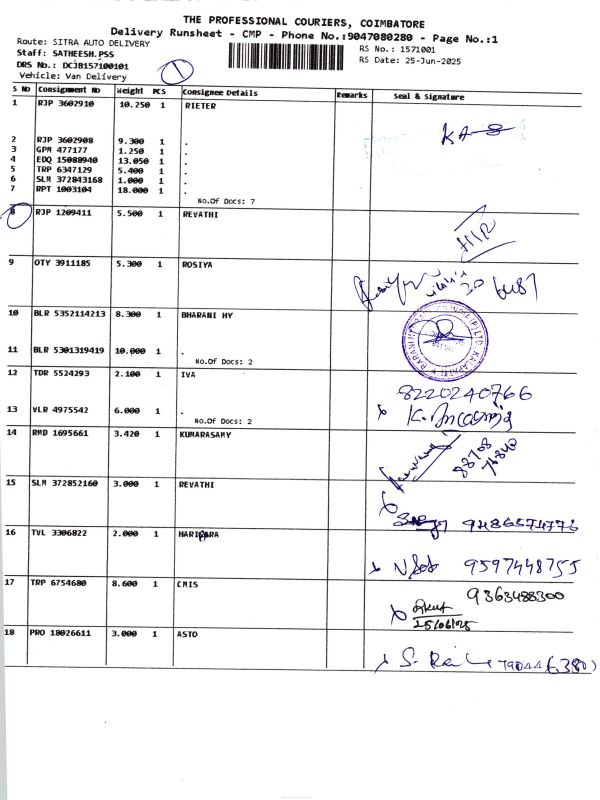 THE PROFESSIONAL COURIERS, COIMBATORE
Delivery Runsheet - CMP - Phone No.:9047080280 - Page No.:1
Route: SITRA AUTO DELIVERY
RS No.: 1571001
Staff: SATHEESH.PSS
RS Date: 25-Jun-2025
DRS No.: DCJB157100101
1
Vehicle: Van Delivery
S No Consignment No Weight PCS Consignee Details Remarks Seal & Signature
1 RJP 3602910 10.250 1 RIETER
2 RJP 3602908 9.300 1 .
3 GPM 477177 1.250 1 .
4 EDQ 15088940 13.050 1 .
5 TRP 6347129 5.400 1 .
6 SLM 372843168 1.000 1 .
7 RPT 1003104 18.000 1 .
No.Of Docs: 7
8 RJP 1209411 5.500 1 REVATHI
9 OTY 3911185 5.300 1 ROSIYA
10 BLR 5352114213 8.300 1 BHARANI HY
11 BLR 5301319419 10.000 1 .
No.Of Docs: 2
12 TDR 5524293 2.100 1 IVA
8220240766
13 VLR 4975542 6.000 1 .
No.Of Docs: 2
14 RMD 1695661 3.420 1 KUMARASAMY
88708
15 SLM 372852160 3.000 1 REVATHI
16 TVL 3306822 2.000 1
9597448755
17 TRP 6754680 8.600 1 CMIS
9363488300
25/06/25
18 PRO 18026611 3.000 1 ASTO